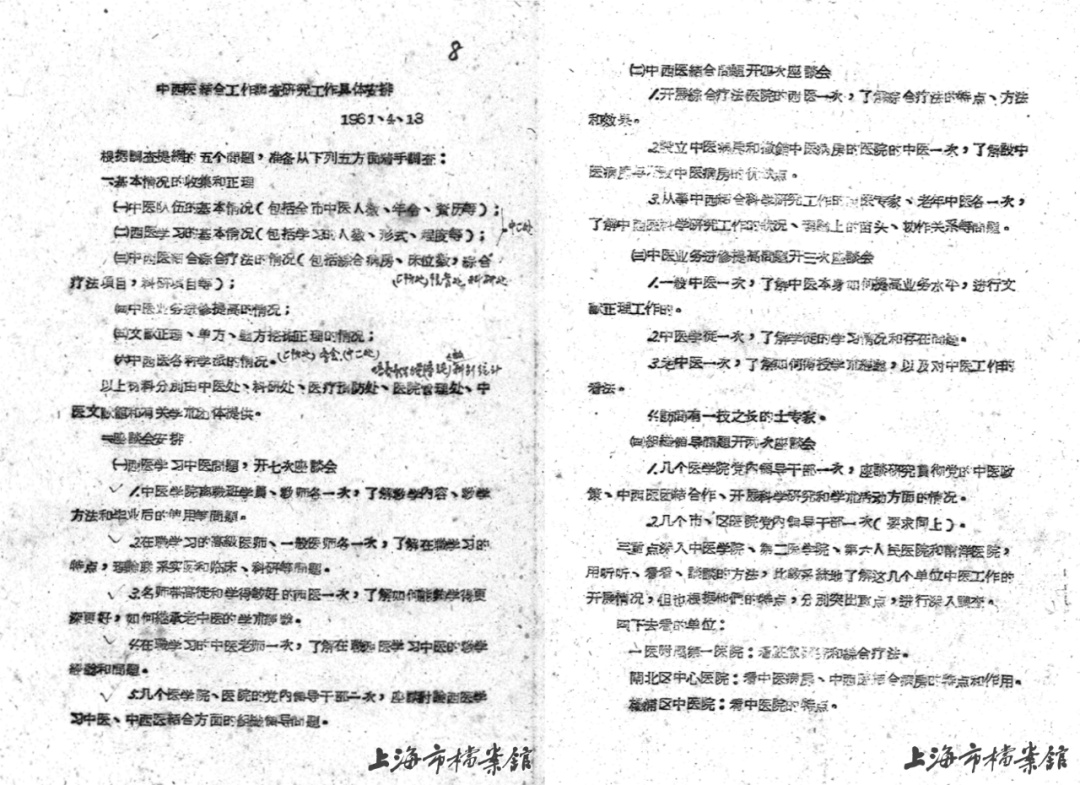 8
中西医结合工作调查研究工作具体安排
1961、4、18
根据调查提纲的五个问题，准备从下列五方面着手调查：
一基本情况的收集和正理
㈠中医队伍的基本情况（包括全市中医人数、年令、资历等）；
㈡西医学习的基本情况（包括学习的人数、形式、程度等）；
中二处
㈢中西医结合综合疗法的情况（包括综合病房、床位数，综合
疗法项目，科研项目等）；
㈣中医业务进修提高的情况；
㈤文献正理、单方、验方挖掘正理的情况；
㈥中西医各种学派的情况。
以上材料分别由中医处、科研处、医疗预防处、医院管理处、中
医文献馆和有关学术团体提供。
二座谈会安排
㈠西医学习中医问题，开七次座谈会
✓ 1.中医学院高级班学员、教师各一次，了解教学内容、教学
方法和毕业后的使用等问题。
✓ 2.在职学习的高级医师、一般医师各一次，了解在职学习的
特点，理论联系实际和临床、科研等问题。
✓ 3.名师带高徒和学得较好的西医一次，了解如何能教学得更
深更好，如何继承老中医的学术经验。
✓ 4.在职学习的中医老师一次，了解在职西医学习中医的教学
经验和问题。
✓ 5.几个医学院、医院的党内领导干部二次，座谈讨论西医学
习中医、中西医结合方面的经验领导问题。
上海市档案馆
㈡中西医结合问题开四次座谈会
1.开展综合疗法医院的西医一次，了解综合疗法的特点、方法
和效果。
2.设立中医病房和撤销中医病房的医院的中医一次，了解设中
医病房与不设中医病房的优缺点。
3.从事中西结合科学研究工作的西医专家、老年中医各一次，
了解中西医科学研究工作的状况、理论上的苗头、协作关系等问题。
㈢中医业务进修提高问题开三次座谈会
1.一般中医一次，了解中医本身如何提高业务水平，进行文
献正理工作的。
2.中医学徒一次，了解学徒的学习情况和存在问题。
3.老中医一次，了解如何传授学术经验，以及对中医工作的
看法。
4.访问有一技之长的土专家。
㈣组织领导问题开两次座谈会
1.几个医学院党内领导干部一次，座谈研究贯彻党的中医政
策、中西医团结合作、开展科学研究和学术活动方面的情况。
2.几个市、区医院党内领导干部一次（要求同上）。
三重点深入中医学院、第二医学院、第六人民医院和南洋医院，
用听听、看看、谈谈的方法，比较系统地了解这几个单位中医工作的
开展情况，但也根据他们的特点，分别突出重点，进行深入调查。
四下去看的单位：
一医附属第一医院：看和综合疗法。
闸北区中心医院：看中医病房、中西医结合病房的特点和作用。
杨浦区中医院：看中医院的特点。
上海市档案馆